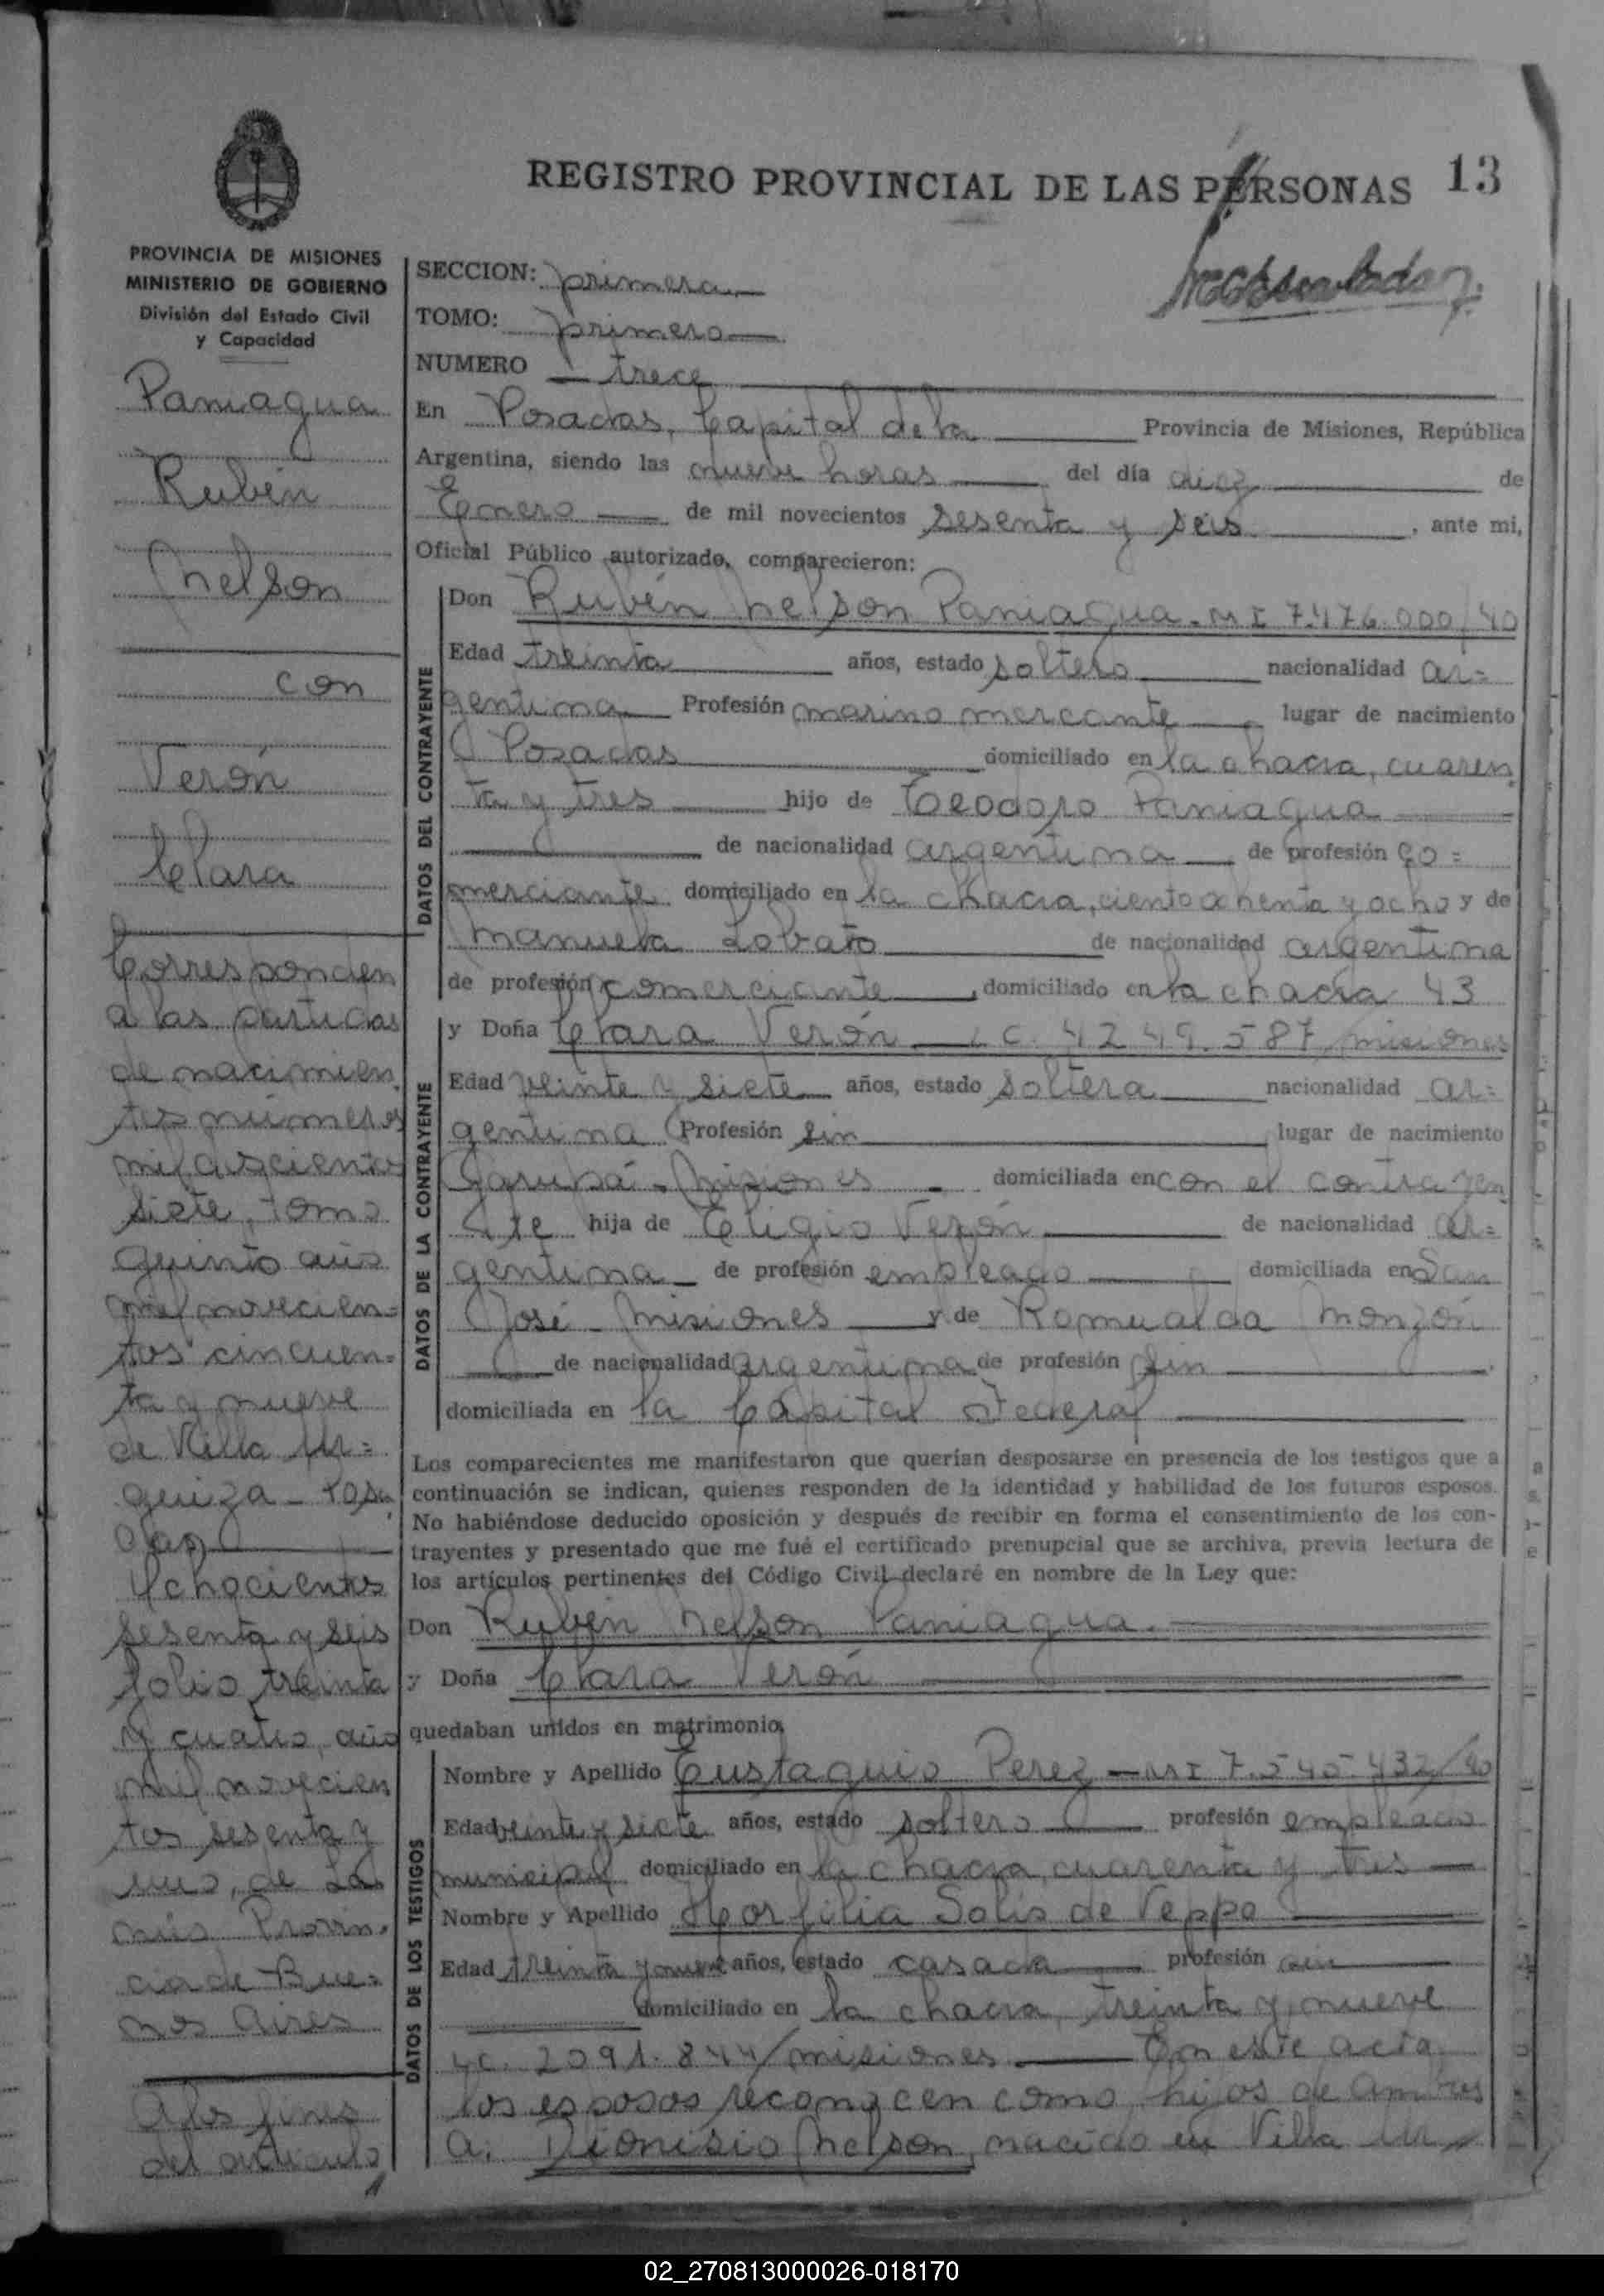 REGISTRO PROVINCIAL DE LAS PERSONAS 13
PROVINCIA DE MISIONES
MINISTERIO DE GOBIERNO
División del Estado Civil
y Capacidad
Paniagua
Rubén
Nelson
con
Verón
Clara
Corresponden
a las partidas
de nacimien
tos números
mil doscientos
siete, tomo
quinto año
mil novecien=
tos cincuen=
ta y nueve
de Villa Ur=
quiza - Posa
das
Ochocientos
sesenta y seis
folio treinta
y cuatro, año
mil novecien
tos sesenta y
uno, de La
nús Provin
cia de Bue=
nos Aires
A los fines
del artículo
SECCION: primera
TOMO: primero
NUMERO trece
En Posadas, Capital de la Provincia de Misiones, República
Argentina, siendo las nueve horas del día diez de
Enero de mil novecientos sesenta y seis, ante mi,
Oficial Público autorizado, comparecieron:
DATOS DEL CONTRAYENTE
Don Rubén Nelson Paniagua - MI 7.476.000/40
Edad treinta años, estado soltero nacionalidad ar=
gentina Profesión marino mercante, lugar de nacimiento
Posadas domiciliado en la chacra, cuaren
ta y tres hijo de Teodoro Paniagua
de nacionalidad argentina, de profesión co=
merciante domiciliado en la chacra, ciento ochenta y ocho y de
Manuela Lobato de nacionalidad argentina
de profesión comerciante, domiciliado en la chacra 43
DATOS DE LA CONTRAYENTE
y Doña Clara Verón L C. 4249.587 misiones
Edad veinte y siete años, estado soltera nacionalidad ar=
gentina Profesión sin lugar de nacimiento
Garupá - Misiones - domiciliada en con el contrayen
te hija de Eligio Verón de nacionalidad ar=
gentina de profesión empleado domiciliada en San
José - Misiones y de Romualda Monzón
de nacionalidad argentina de profesión sin
domiciliada en la Capital Federal
Los comparecientes me manifestaron que querían desposarse en presencia de los testigos que a
continuación se indican, quienes responden de la identidad y habilidad de los futuros esposos.
No habiéndose deducido oposición y después de recibir en forma el consentimiento de los con-
trayentes y presentado que me fué el certificado prenupcial que se archiva, previa lectura de
los artículos pertinentes del Código Civil declaré en nombre de la Ley que:
Don Rubén Nelson Paniagua.
y Doña Clara Verón
quedaban unidos en matrimonio.
DATOS DE LOS TESTIGOS
Nombre y Apellido Eustaquio Perez - MI 7.540.432/40
Edad veinte y siete años, estado soltero profesión empleado
municipal domiciliado en la chacra, cuarenta y tres
Nombre y Apellido Horfilia Solis de Veppo
Edad treinta y nueve años, estado casada profesión sin
domiciliado en la chacra, treinta y nueve
LC. 2091.844/misiones En este acta
los esposos reconocen como hijos de ambos
a: Dionisio Nelson, nacido en Villa Ur
02_270813000026-018170